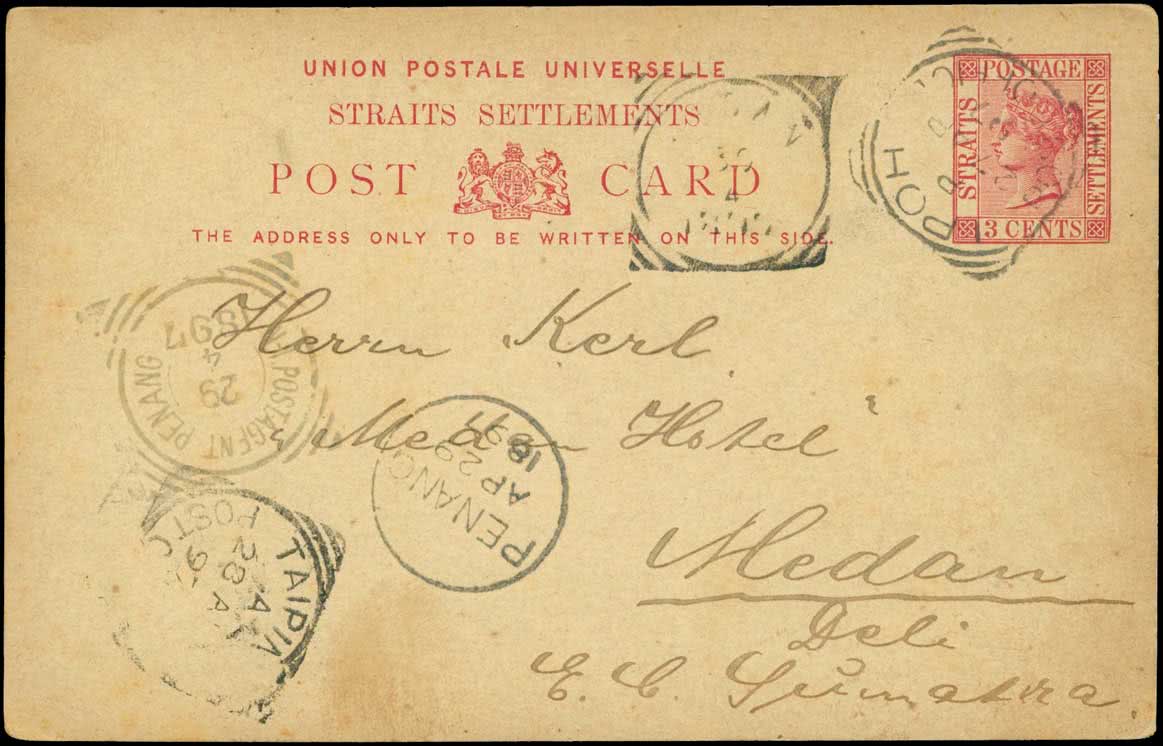 UNION POSTALE UNIVERSELLE
STRAITS SETTLEMENTS
POST CARD
THE ADDRESS ONLY TO BE WRITTEN ON THIS SIDE.
POSTAGE
STRAITS
SETTLEMENTS
3 CENTS
IPOH
Herrn Kerl
"Medan Hotel"
Medan
Deli
E. C. Sumatra
POSTAGENT PENANG
29
4
1897
PENANG
AP 29
1897
TAIPIN
POST
28 A